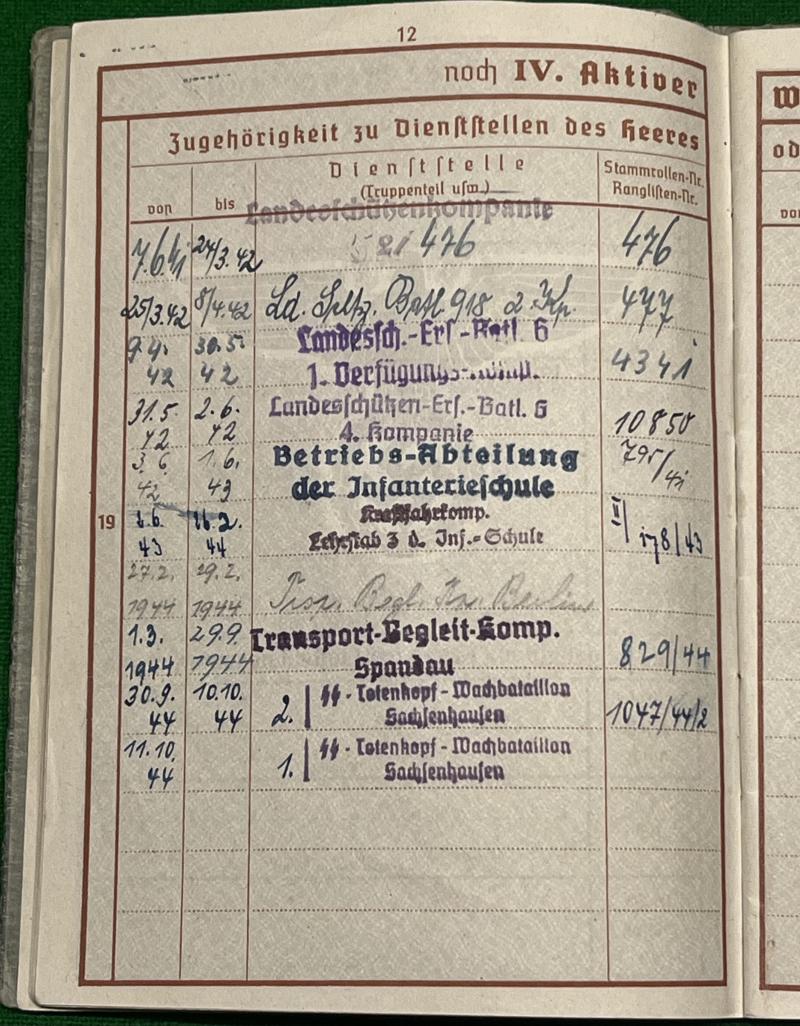 12
noch IV. Aktiver
Zugehörigkeit zu Dienststellen des Heeres
von bis Dienststelle (Truppenteil usw.) Stammrollen-Nr. Ranglisten-Nr.
Landesschützenkompanie
7.6.41 24/3.42 476 476
25/3.42 8/4.42 Ld. Schtz. Batl. 918 2 Kp. 477
9.4. 30.5. Landessch.-Ers.-Batl. 6
42 42 1. Verfügungs-Komp. 4341
31.5. 2.6. Landesschützen-Ers.-Batl. 6
42 42 4. Kompanie 10850
3.6. 1.6. Betriebs-Abteilung
42 43 der Infanterieschule
19 16.2. Kraftfahrkomp.
43 44 Lehrstab 3 d. Inf.-Schule 178/43
27.2. 29.2.
1944 1944 Berlin
1.3. 29.9. Transport-Begleit-Komp.
1944 1944 Spandau 829/44
30.9. 10.10. ᛋᛋ-Totenkopf-Wachbataillon
44 44 2. Sachsenhausen 1047/44/2
11.10. ᛋᛋ-Totenkopf-Wachbataillon
44 1. Sachsenhausen
W
od
von